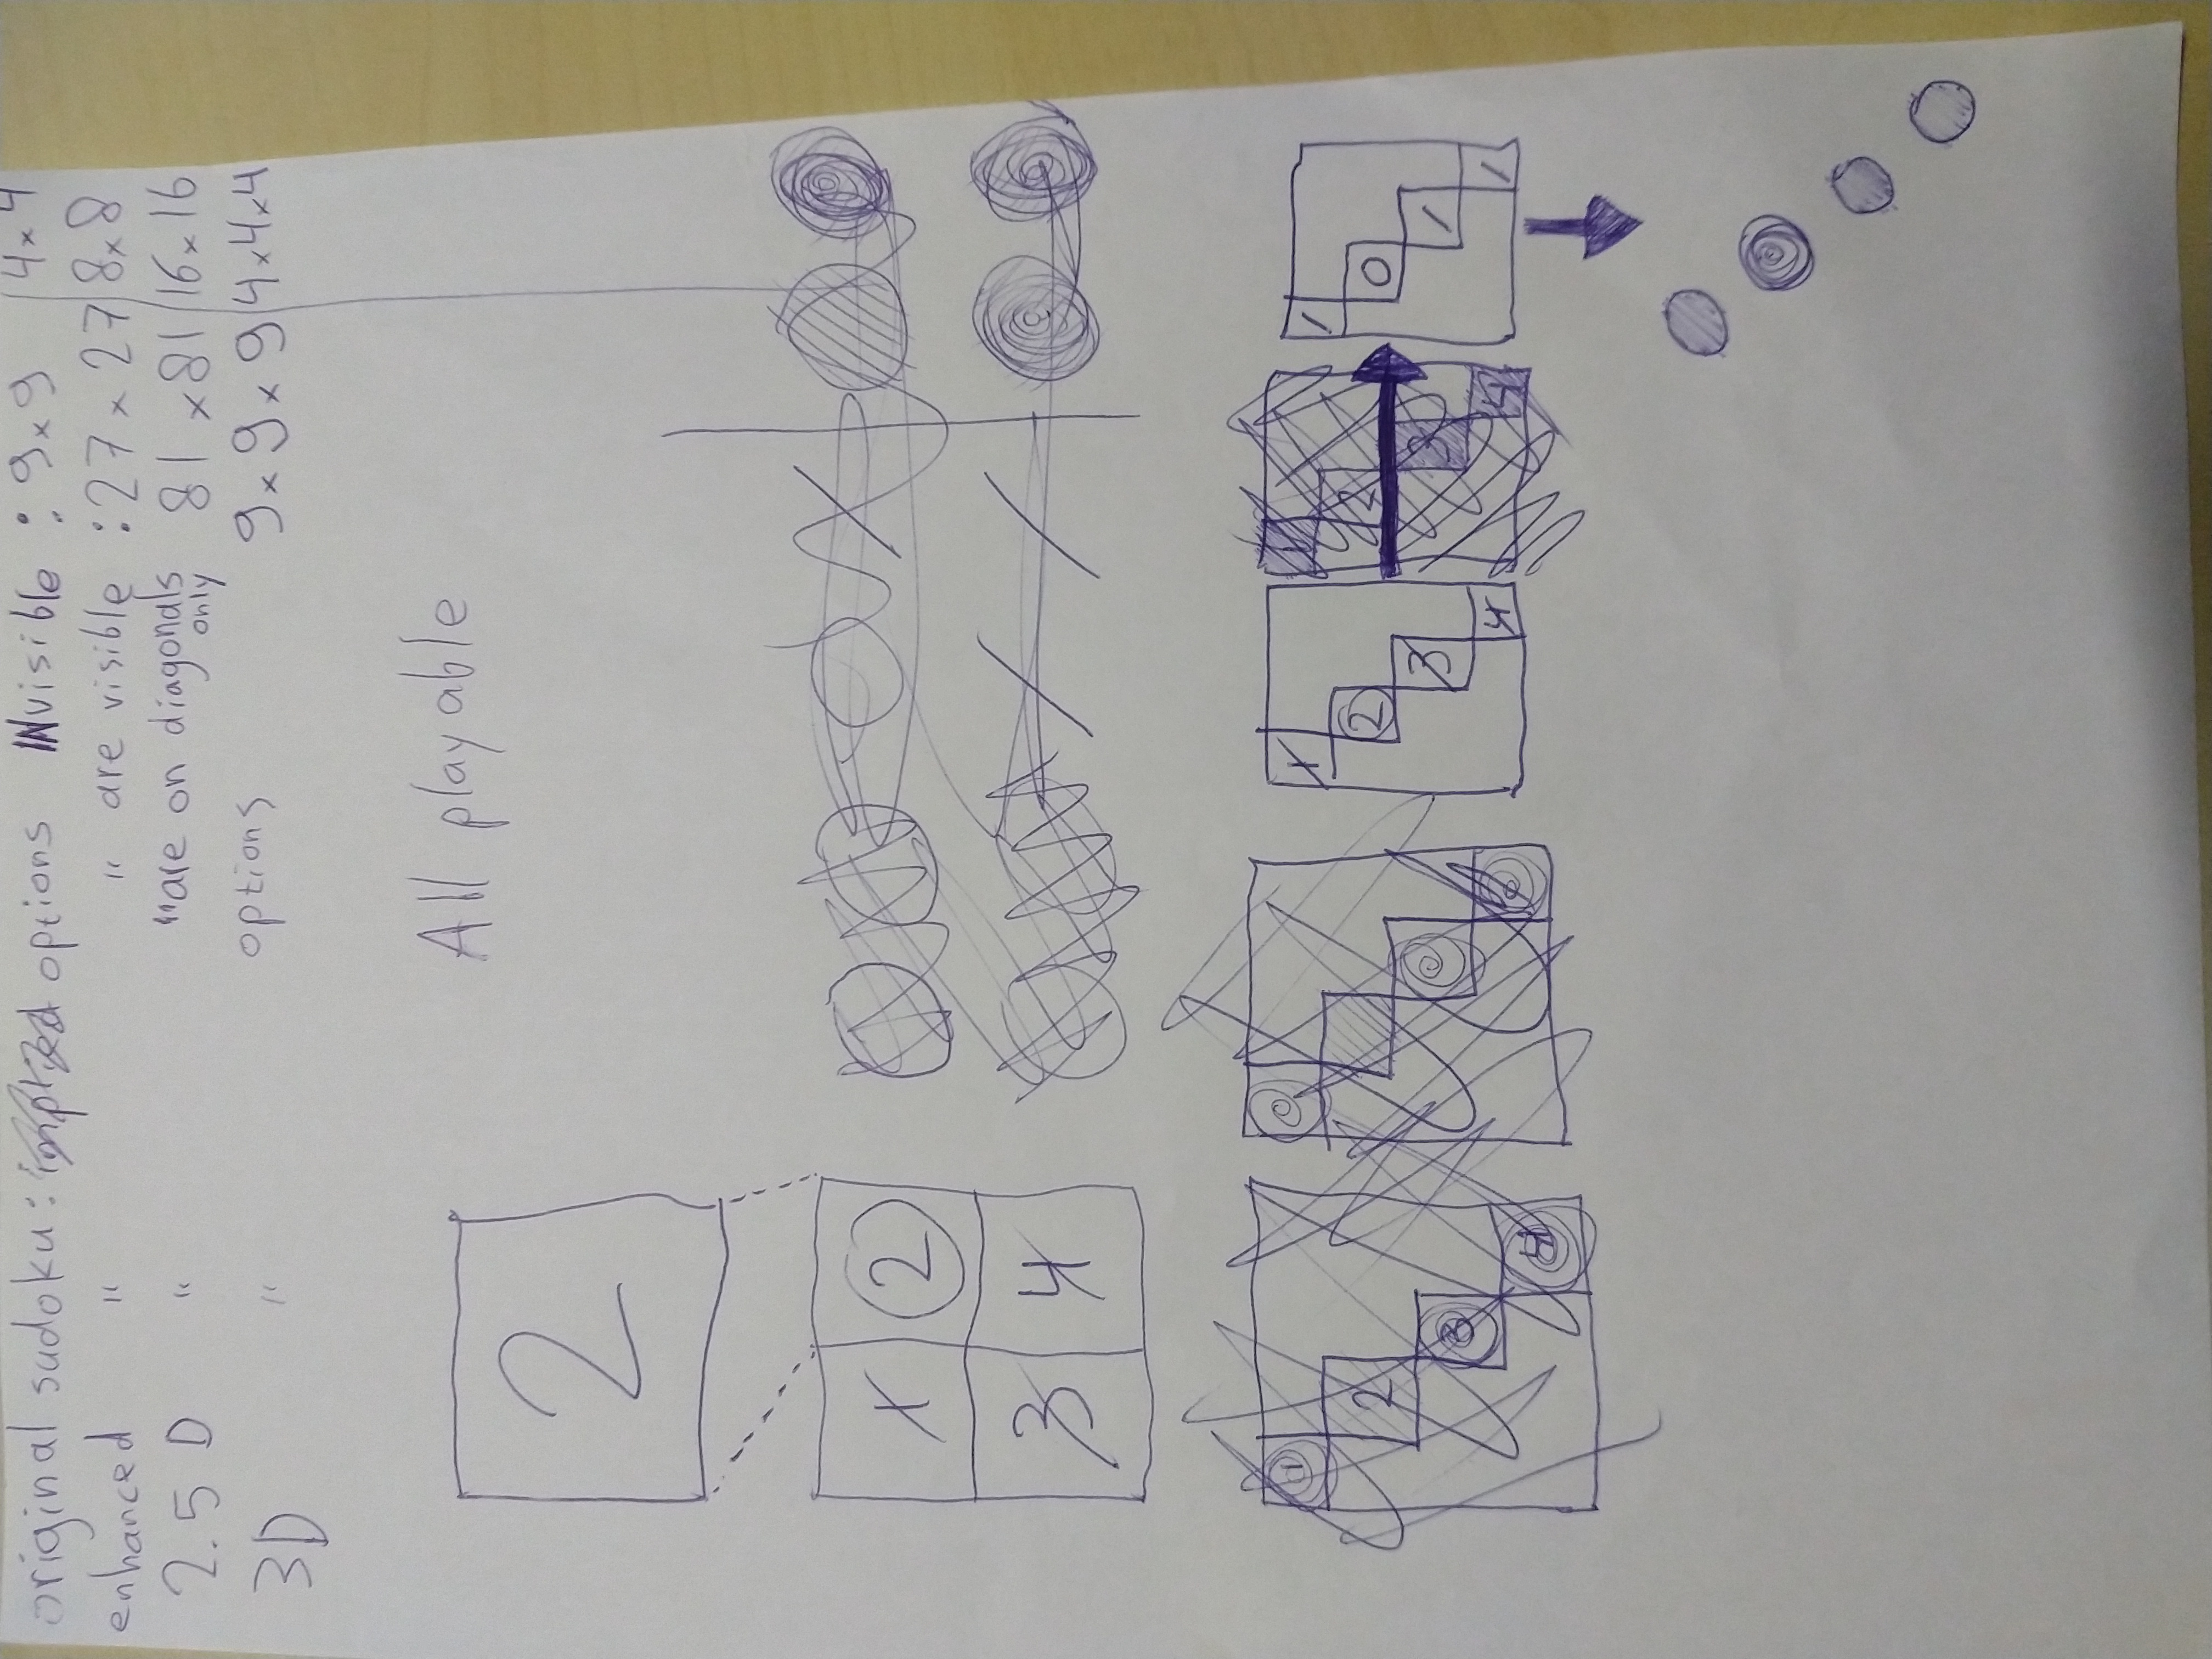 original sudoku: options INvisible : 9x9 | 4x4
enhanced " " are visible : 27 x 27 | 8x8
2.5 D " "are on diagonals only 81 x 81 | 16x16
3D " options 9x9x9 | 4x4x4
All playable
2
1 2
3 4
1 2 3 4
1 2 3 4
1 0 1 1